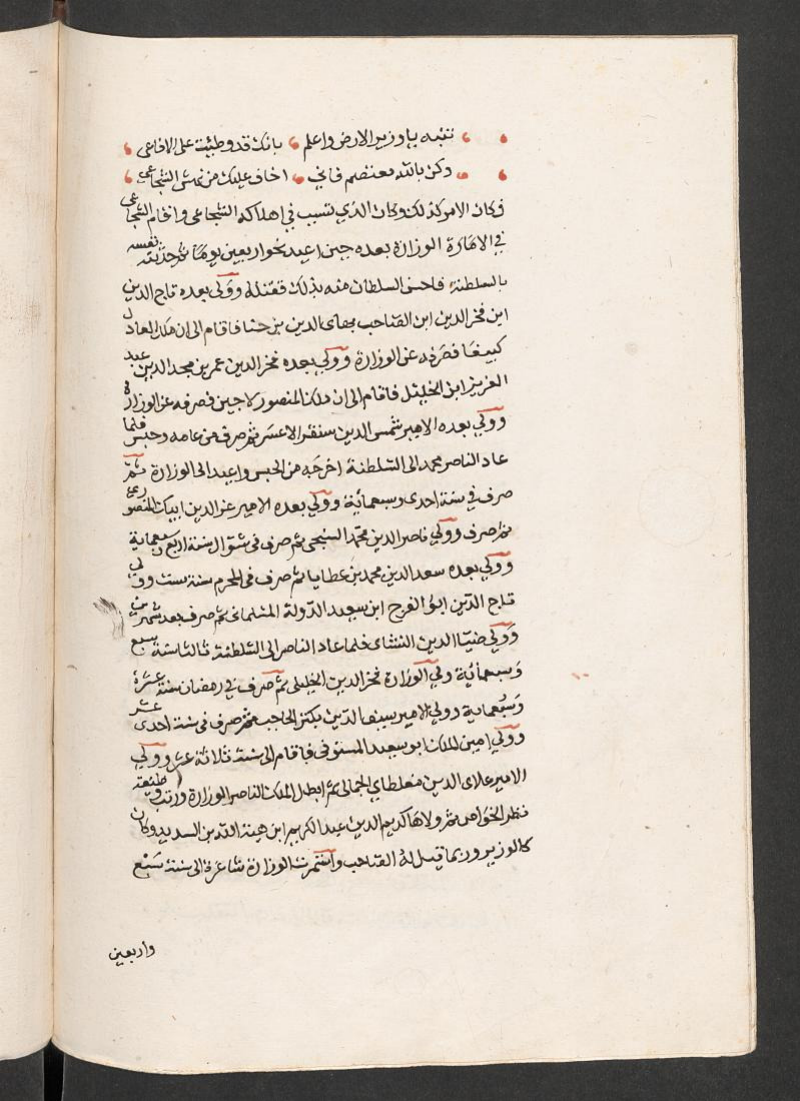 تنبه يا وزير الارض واعلم بانك قد وطئت على الافاعى
وكن بالله معتصم فاني اخاف عليك من نهش الشجاعي
فكان الامر كذلك وكان الذي تسبب في اهلاكه الشجاعى واقام الشجاعى
في الامارة الوزارة بعده حين اعيد نحو اربعين يوما ثم حدثته نفسه
بالسلطنة فاحس السلطان منه بذلك فقتله وولى بعده تاج الدين
ابن فخر الدين ابن الصاحب بهاى الدين بن حنا فاقام الى ان ملك العادل
كتبغا فصرفه عن الوزارة وولي بعده فخر الدين عمر بن مجد الدين عبد
العزيز ابن الخليل فاقام الى ان ملك المنصور لاجين فصرفه عن الوزارة
وولي بعده الامير شمس الدين سنقر الاعسر ثم صرف من عامه وحبس فلما
عاد الناصر محمد الى السلطنة اخرجه من الحبس واعيد الى الوزارة ثم
صرف في سنة احدى وسبعمائة وولي بعده الامير عز الدين ايبك المنصورى
ثم صرف وولي ناصر الدين محمد السنجى ثم صرف فى شوال سنة اربع وسبعماية
وولي بعده سعد الدين محمد بن عطايا ثم صرف فى المحرم سنة ست وولي
تاج الدين ابو الفرج ابن سعيد الدولة المسلمانى ثم صرف بعد شهرين
وولي ضيا الدين النشاى فلما عاد الناصر الى السلطنة ثالثا سنة سبع
وسبعمائية ولي الوزارة فخر الدين الخليلى ثم صرف في رمضان سنة عشرة
وسبعماية وولي الامير سيف الدين بكتمر الحاجب ثم صرف فى سنة احدى عشر
وولي امين الملك ابو سعيد المستوفى فاقام الى سنة ثلاثة عشر وولي
الامير علاى الدين مغلطاي الجمالى ثم ابطل الملك الناصر الوزارة ورتب وظيفة
نظر الخواص ثم ولاها كديم الدين عبد الكريم ابن هبة الله بن السديد وكان
كالوزير وربما قيل له الصاحب واستمرت الوزارة شاغرة الى سنة سبع
واربعين